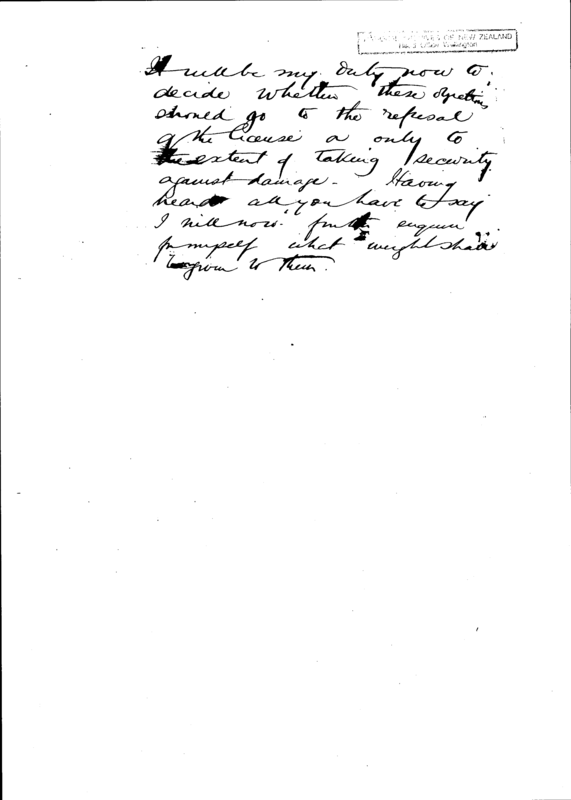 ARCHIVES OF NEW ZEALAND
Wellington
It will be my duty now to
decide whether these objections
should go to the refusal
of the license or only to
the extent of taking security
against damage - Having
heard all you have to say
I will now further enquire
for myself what weight shall
be given to them.